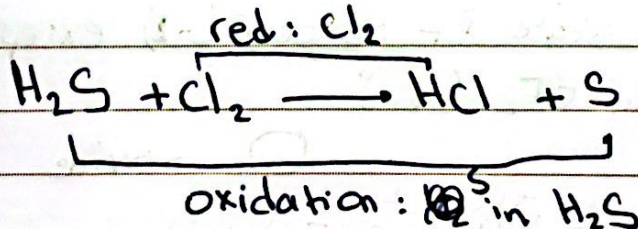 red: Cl₂
H₂S + Cl₂ → HCl + S
oxidation: S in H₂S